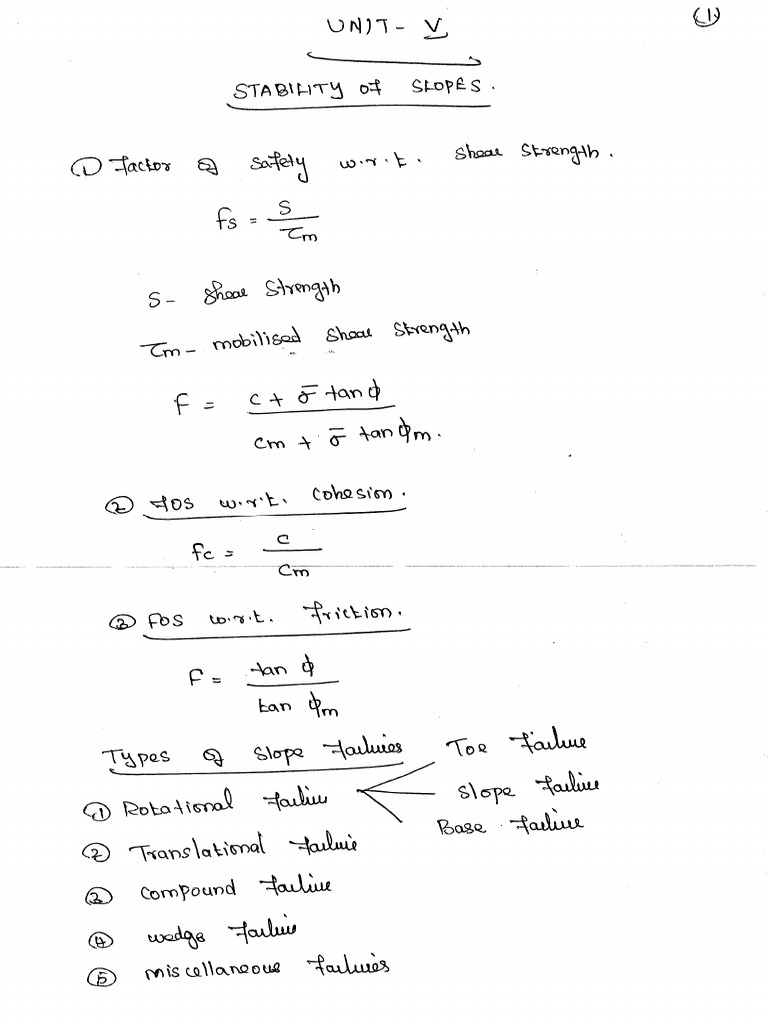 (1)
UNIT - V
STABILITY of SLOPES.
① Factor of safety w.r.t. shear strength.
fs = S / τm
S - shear strength
τm - mobilised shear strength
F = c + σ̄ tan ϕ / cm + σ̄ tan ϕm.
② FOS w.r.t. cohesion.
fc = c / cm
③ FOS w.r.t. friction.
F = tan ϕ / tan ϕm
Types of slope Failures
① Rotational Failure
Toe Failure
Slope Failure
Base Failure
② Translational Failure
③ compound Failure
④ wedge Failure
⑤ miscellaneous Failures